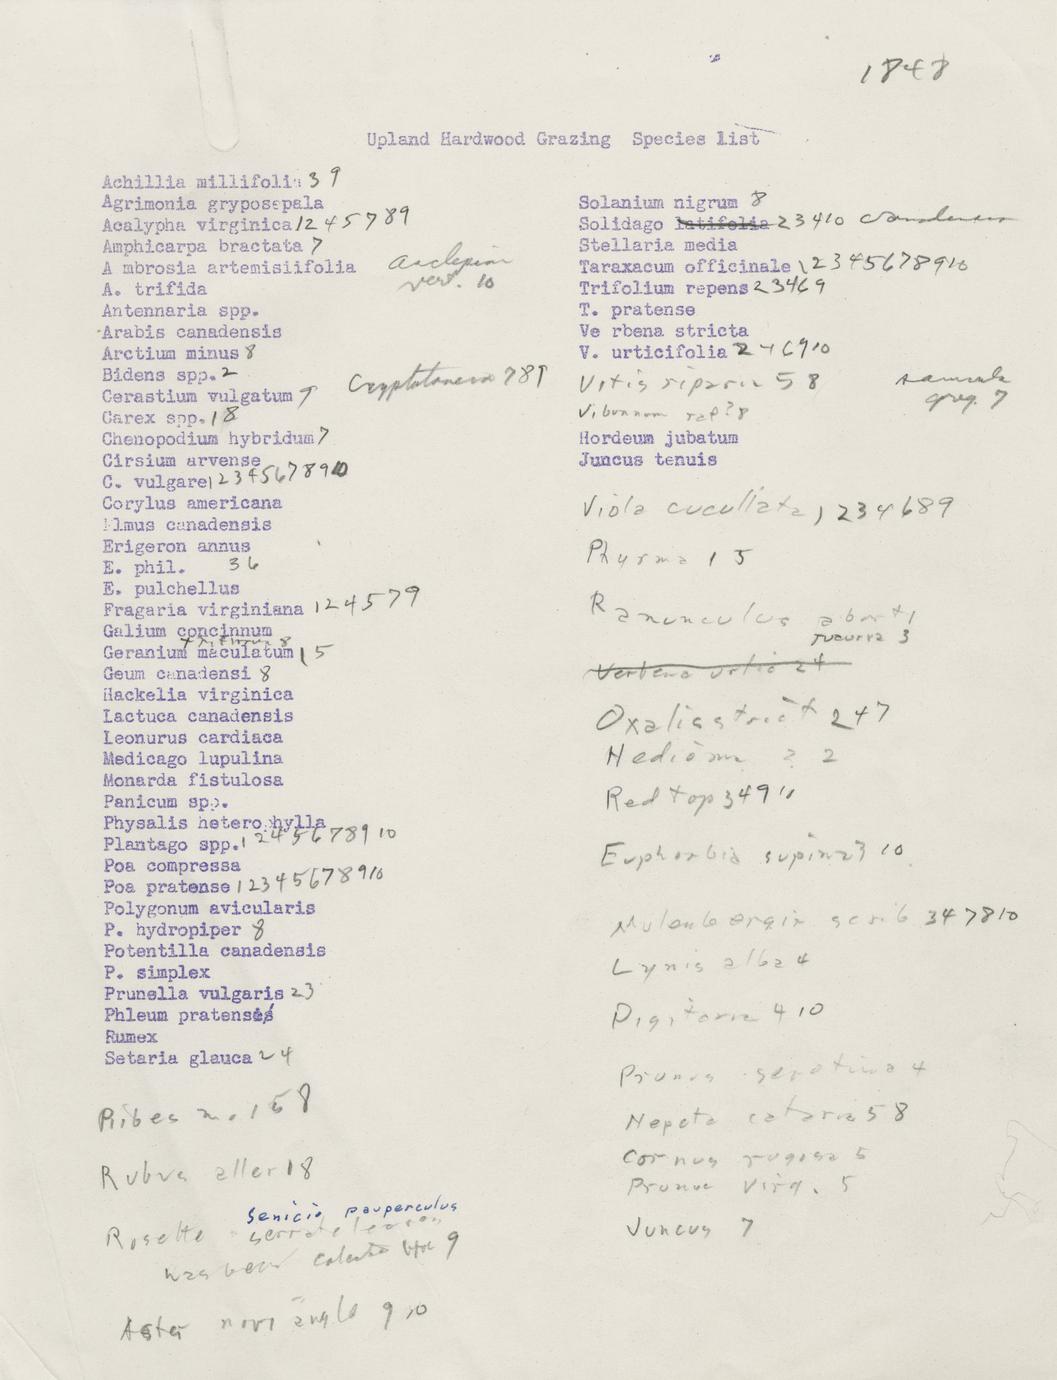 1848
Upland Hardwood Grazing Species list
Achillia millifolia 3 9
Agrimonia gryposepala
Acalypha virginica 1 2 4 5 7 8 9
Amphicarpa bractata 7
A mbrosia artemisiifolia
vert. 10
A. trifida
Antennaria spp.
Arabis canadensis
Arctium minus 8
Bidens spp. 2
Cryptotaenia 7 8 9
Cerastium vulgatum 9
Carex spp. 1 8
Chenopodium hybridum 7
Cirsium arvense
C. vulgare 1 2 3 4 5 6 7 8 9 10
Corylus americana
Elmus canadensis
Erigeron annus
E. phil. 3 6
E. pulchellus
Fragaria virginiana 1 2 4 5 7 9
Galium concinnum
Geranium maculatum 1 5
Geum canadensi 8
Hackelia virginica
Lactuca canadensis
Leonurus cardiaca
Medicago lupulina
Monarda fistulosa
Panicum spp.
Physalis heterophylla
Plantago spp. 1 2 4 5 6 7 8 9 10
Poa compressa
Poa pratense 1 2 3 4 5 6 7 8 9 10
Polygonum avicularis
P. hydropiper 8
Potentilla canadensis
P. simplex
Prunella vulgaris 2 3
Phleum pratens
Rumex
Setaria glauca 2 4
Ribes m. 1 5 8
Rubus aller 1 8
Senicio pauperculus
Rosette serrate leaves
was been 9
Aster novi angle 9 10
Solanium nigrum 8
Solidago latifolia 2 3 4 10 canadensis
Stellaria media
Taraxacum officinale 1 2 3 4 5 6 7 8 9 10
Trifolium repens 2 3 4 6 9
T. pratense
Ve rbena stricta
V. urticifolia 2 4 6 9 10
Vitis riparia 5 8
Sanicula
greg. 7
Vibunnum raf? 8
Hordeum jubatum
Juncus tenuis
Viola cucullata 1 2 3 4 6 8 9
Phyrma 1 5
Ranunculus aborti
recurva 3
Verbena urtic 2 4
Oxalis strict 2 4 7
Hediom ? 2
Red top 3 4 9 10
Euphorbia supina 3 10
Mulenbergia scrib 3 4 7 8 10
Lynis alba 4
Digitaria 4 10
Prunus serotina 4
Nepeta cataria 5 8
Cornus rugosa 5
Prunus virg. 5
Juncus 7